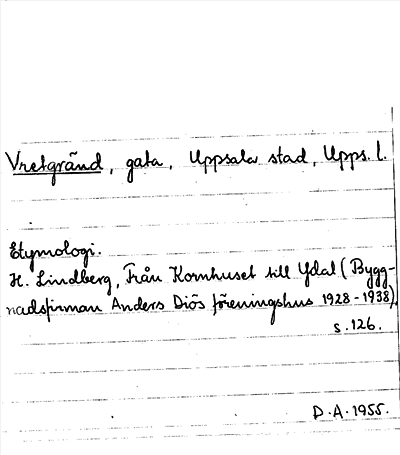 Vretgränd, gata, Uppsala stad, Upps. l.
Etymologi.
H. Lindberg, Från Kornhuset till Ydal (Bygg-
nadsfirman Anders Diös föreningshus 1928-1938),
s. 126.
D.A. 1955.